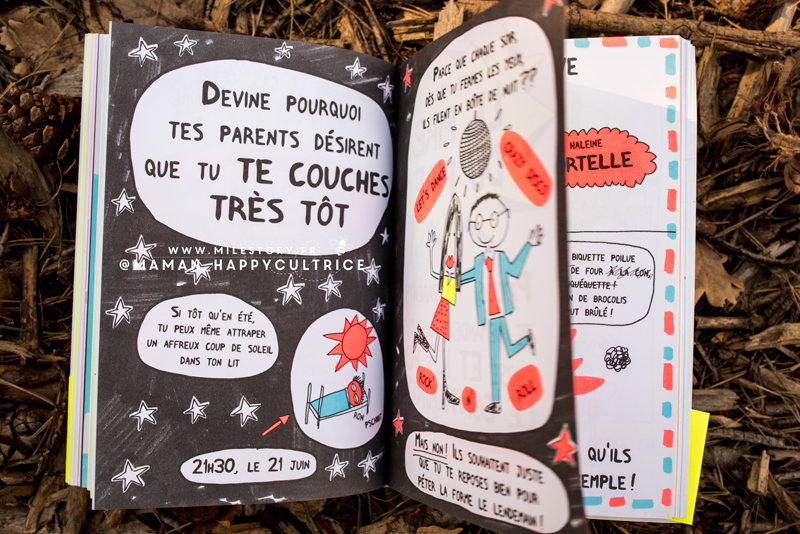 DEVINE POURQUOI
TES PARENTS DÉSIRENT
QUE TU TE COUCHES
TRÈS TÔT
WWW.MILESTORY.FR
@MAMAN_HAPPYCULTRICE
SI TÔT QU'EN ÉTÉ,
TU PEUX MÊME ATTRAPER
UN AFFREUX COUP DE SOLEIL
DANS TON LIT
RON
PSCHHHT
21H30, LE 21 JUIN
PARCE QUE CHAQUE SOIR,
DÈS QUE TU FERMES LES YEUX,
ILS FILENT EN BOÎTE DE NUIT ??
LET'S DANCE
CRAZY DISCO
ROCK
N
ROLL
MAIS NON ! ILS SOUHAITENT JUSTE
QUE TU TE REPOSES BIEN POUR
PÉTER LA FORME LE LENDEMAIN !
VE
HALEINE
RTELLE
BIQUETTE POILUE
DE FOUR À LA CON,
QUÉQUETTE !
N DE BROCOLIS
UT BRÛLÉ !
QU'ILS
EMPLE !